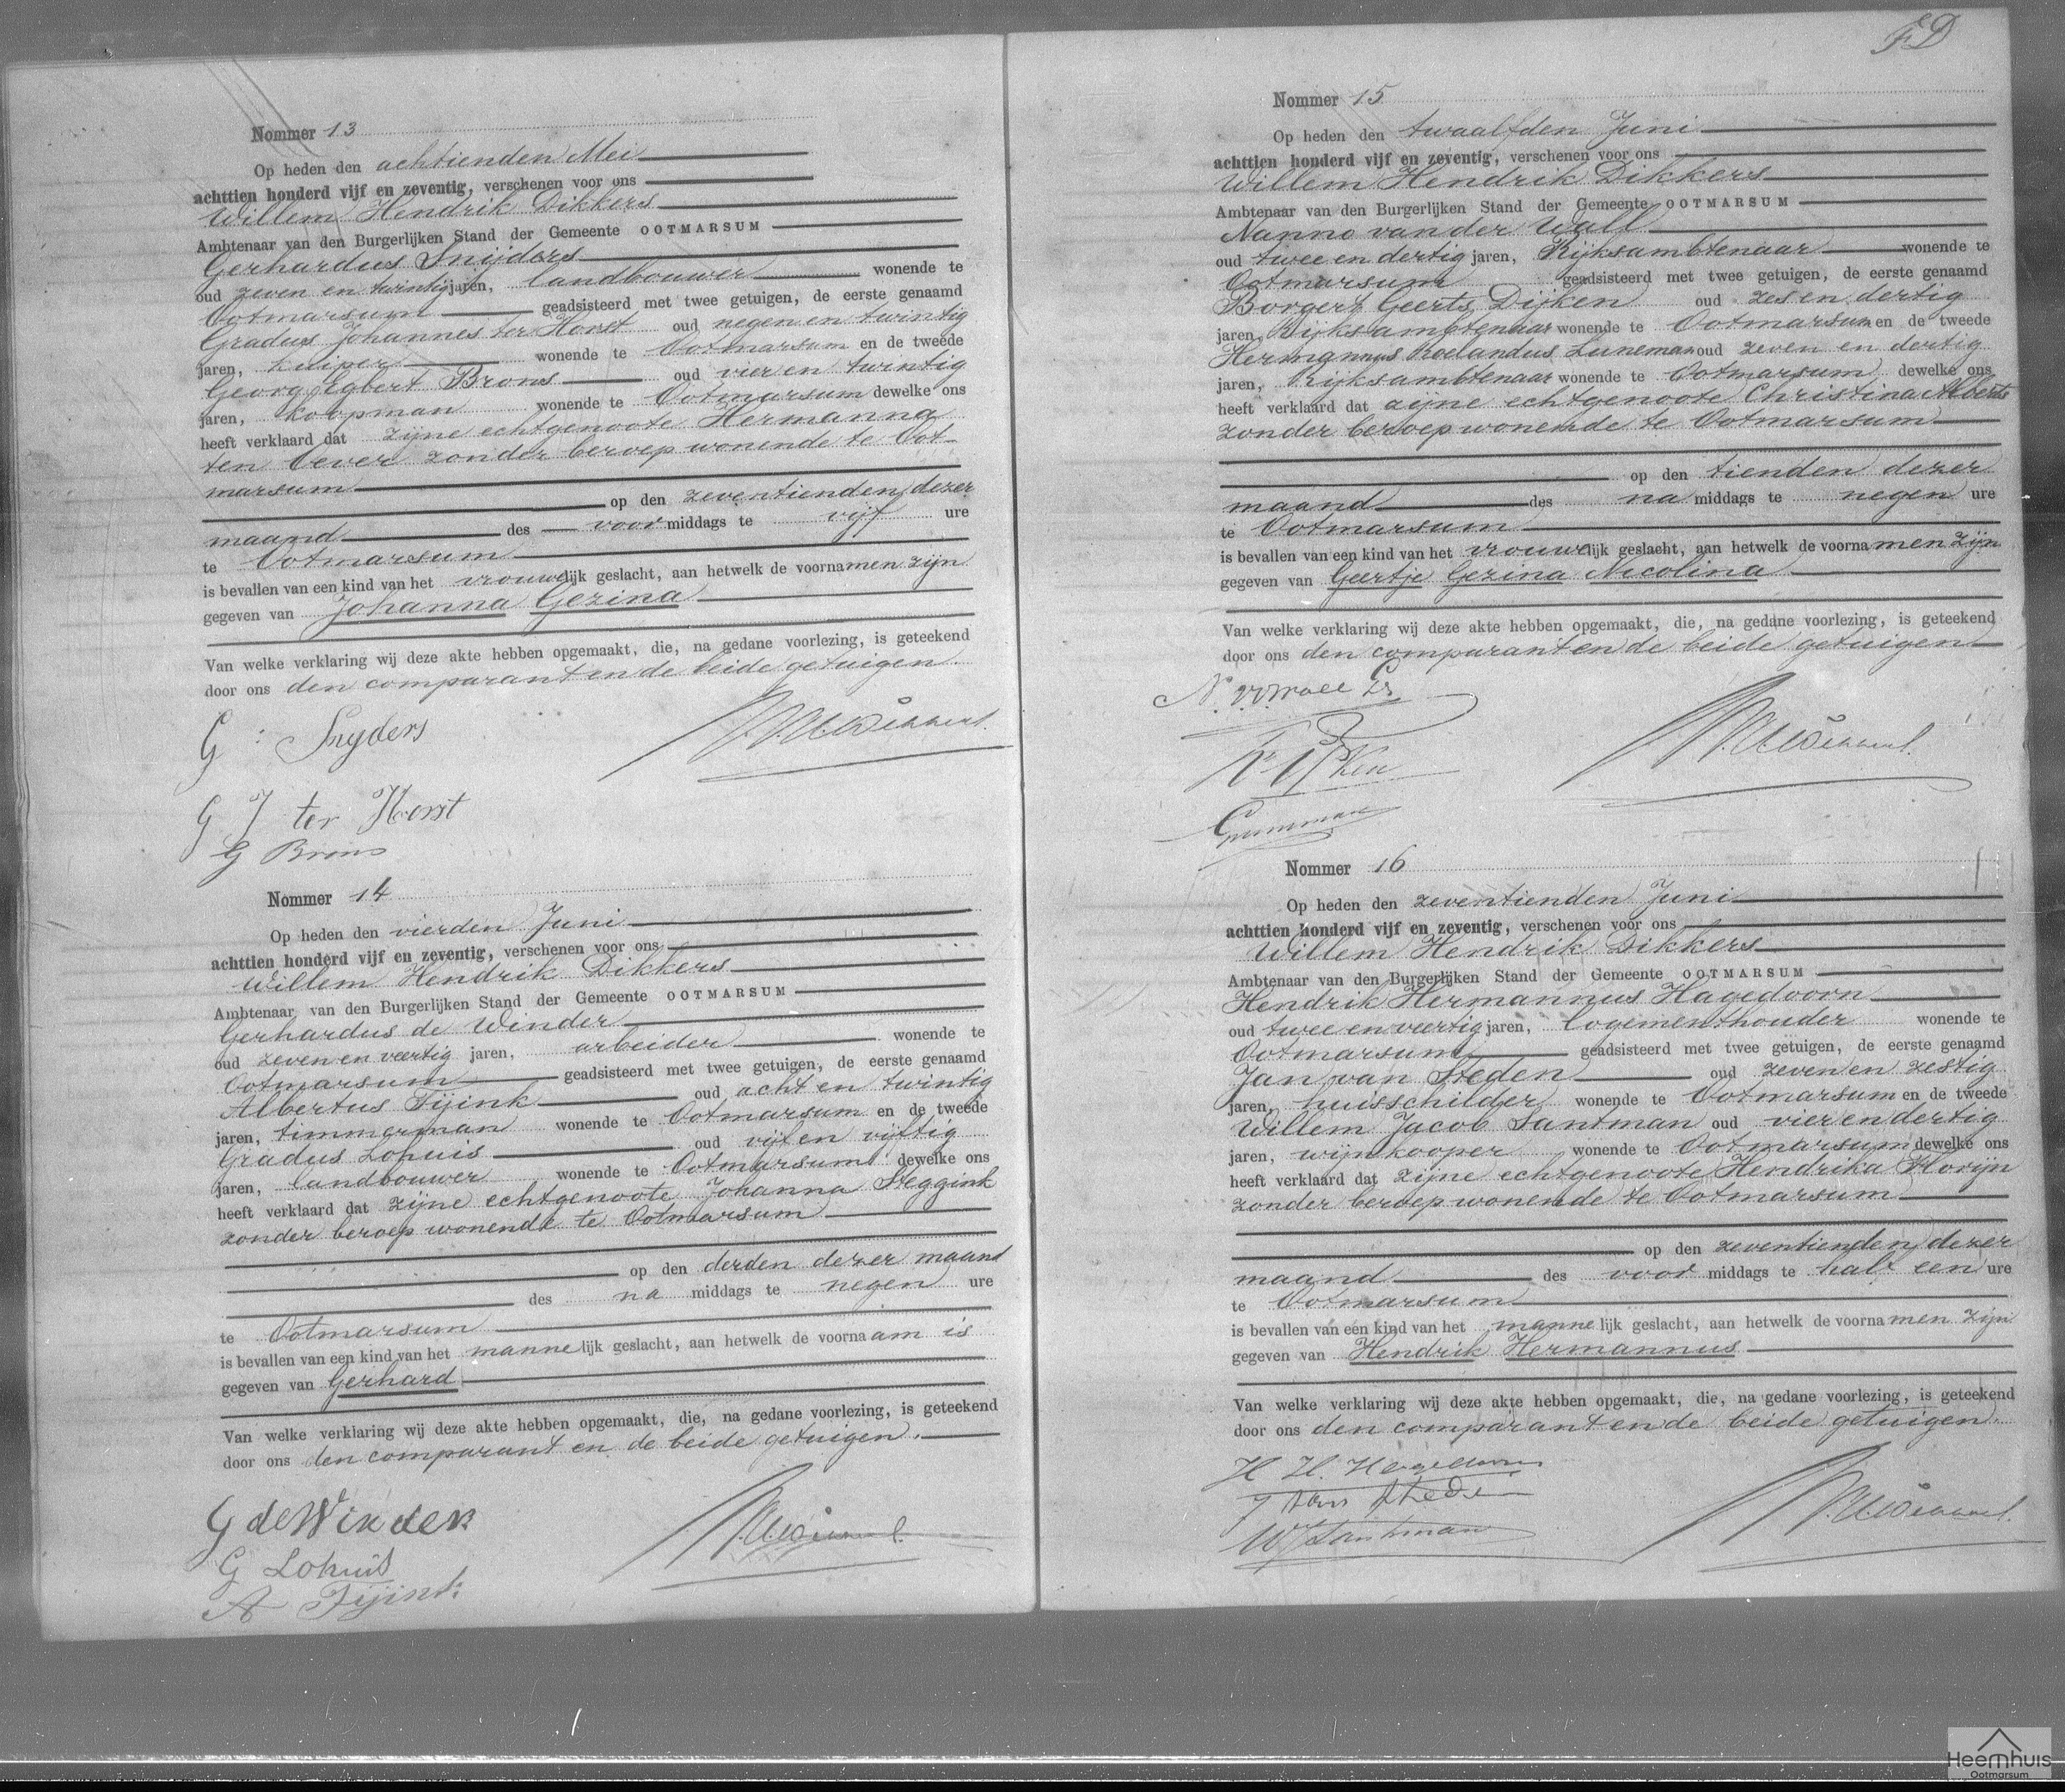 Nommer 13
Op heden den achtienden Mei
achttien honderd vijf en zeventig, verschenen voor ons
Willem Hendrik Dikkers
Ambtenaar van den Burgerlijken Stand der Gemeente OOTMARSUM
Gerhardus Snijders
oud zeven en twintig jaren, landbouwer wonende te
Ootmarsum geadsisteerd met twee getuigen, de eerste genaamd
Gradus Johannes ter Horst oud negen en twintig
jaren, kuiper wonende te Ootmarsum en de tweede
Georg Egbert Brons oud vier en twintig
jaren, koopman wonende te Ootmarsum dewelke ons
heeft verklaard dat zijne echtgenoote Hermanna
ten Oever zonder beroep wonende te Oot-
marsum
op den zeventienden dezer
maand des voor middags te vijf ure
te Ootmarsum
is bevallen van een kind van het vrouwelijk geslacht, aan hetwelk de voornamen zijn
gegeven van Johanna Gezina
Van welke verklaring wij deze akte hebben opgemaakt, die, na gedane voorlezing, is geteekend
door ons den comparant en de beide getuigen.
G: Snyders
G J ter Horst
G Brons
Nommer 14
Op heden den vierden Juni
achttien honderd vijf en zeventig, verschenen voor ons
Willem Hendrik Dikkers
Ambtenaar van den Burgerlijken Stand der Gemeente OOTMARSUM
Gerhardus de Winder
oud zeven en veertig jaren, arbeider wonende te
Ootmarsum geadsisteerd met twee getuigen, de eerste genaamd
Albertus Fijink oud acht en twintig
jaren, timmerman wonende te Ootmarsum en de tweede
Gradus Lohuis oud vijf en vijftig
jaren, landbouwer wonende te Ootmarsum dewelke ons
heeft verklaard dat zijne echtgenoote Johanna Steggink
zonder beroep wonende te Ootmarsum
op den derden dezer maand
des na middags te negen ure
te Ootmarsum
is bevallen van een kind van het mannelijk geslacht, aan hetwelk de voornaam is
gegeven van Gerhard
Van welke verklaring wij deze akte hebben opgemaakt, die, na gedane voorlezing, is geteekend
door ons den comparant en de beide getuigen.
G de Winder
G Lohuis
A Fijink
FD
Nommer 15
Op heden den twaalfden Juni
achttien honderd vijf en zeventig, verschenen voor ons
Willem Hendrik Dikkers
Ambtenaar van den Burgerlijken Stand der Gemeente OOTMARSUM
Nanno van der Wall
oud twee en dertig jaren, Rijksambtenaar wonende te
Ootmarsum geadsisteerd met twee getuigen, de eerste genaamd
Borgert Geerts Dijken oud zes en dertig
jaren, Rijksambtenaar wonende te Ootmarsum en de tweede
Hermannus Roelandus Luneman oud zeven en dertig
jaren, Rijksambtenaar wonende te Ootmarsum dewelke ons
heeft verklaard dat zijne echtgenoote Christina Alberts
zonder beroep wonende te Ootmarsum
op den tienden dezer
maand des na middags te negen ure
te Ootmarsum
is bevallen van een kind van het vrouwelijk geslacht, aan hetwelk de voornamen zijn
gegeven van Geertje Gezina Nicolina
Van welke verklaring wij deze akte hebben opgemaakt, die, na gedane voorlezing, is geteekend
door ons den comparant en de beide getuigen
Nommer 16
Op heden den zeventienden Juni
achttien honderd vijf en zeventig, verschenen voor ons
Willem Hendrik Dikkers
Ambtenaar van den Burgerlijken Stand der Gemeente OOTMARSUM
Hendrik Hermannus Hagedoorn
oud twee en veertig jaren, logementhouder wonende te
Ootmarsum geadsisteerd met twee getuigen, de eerste genaamd
Jan van Steden oud zeven en zestig
jaren, huisschilder wonende te Ootmarsum en de tweede
Willem Jacob Santman oud vier en dertig
jaren, wijnkooper wonende te Ootmarsum dewelke ons
heeft verklaard dat zijne echtgenoote Hendrika Florijn
zonder beroep wonende te Ootmarsum
op den zeventienden dezer
maand des voor middags te half een ure
te Ootmarsum
is bevallen van een kind van het mannelijk geslacht, aan hetwelk de voornamen zijn
gegeven van Hendrik Hermannus
Van welke verklaring wij deze akte hebben opgemaakt, die, na gedane voorlezing, is geteekend
door ons den comparant en de beide getuigen.
H H. Hagedoorn
J van Steden
WJ Santman
Heemhuis
Ootmarsum